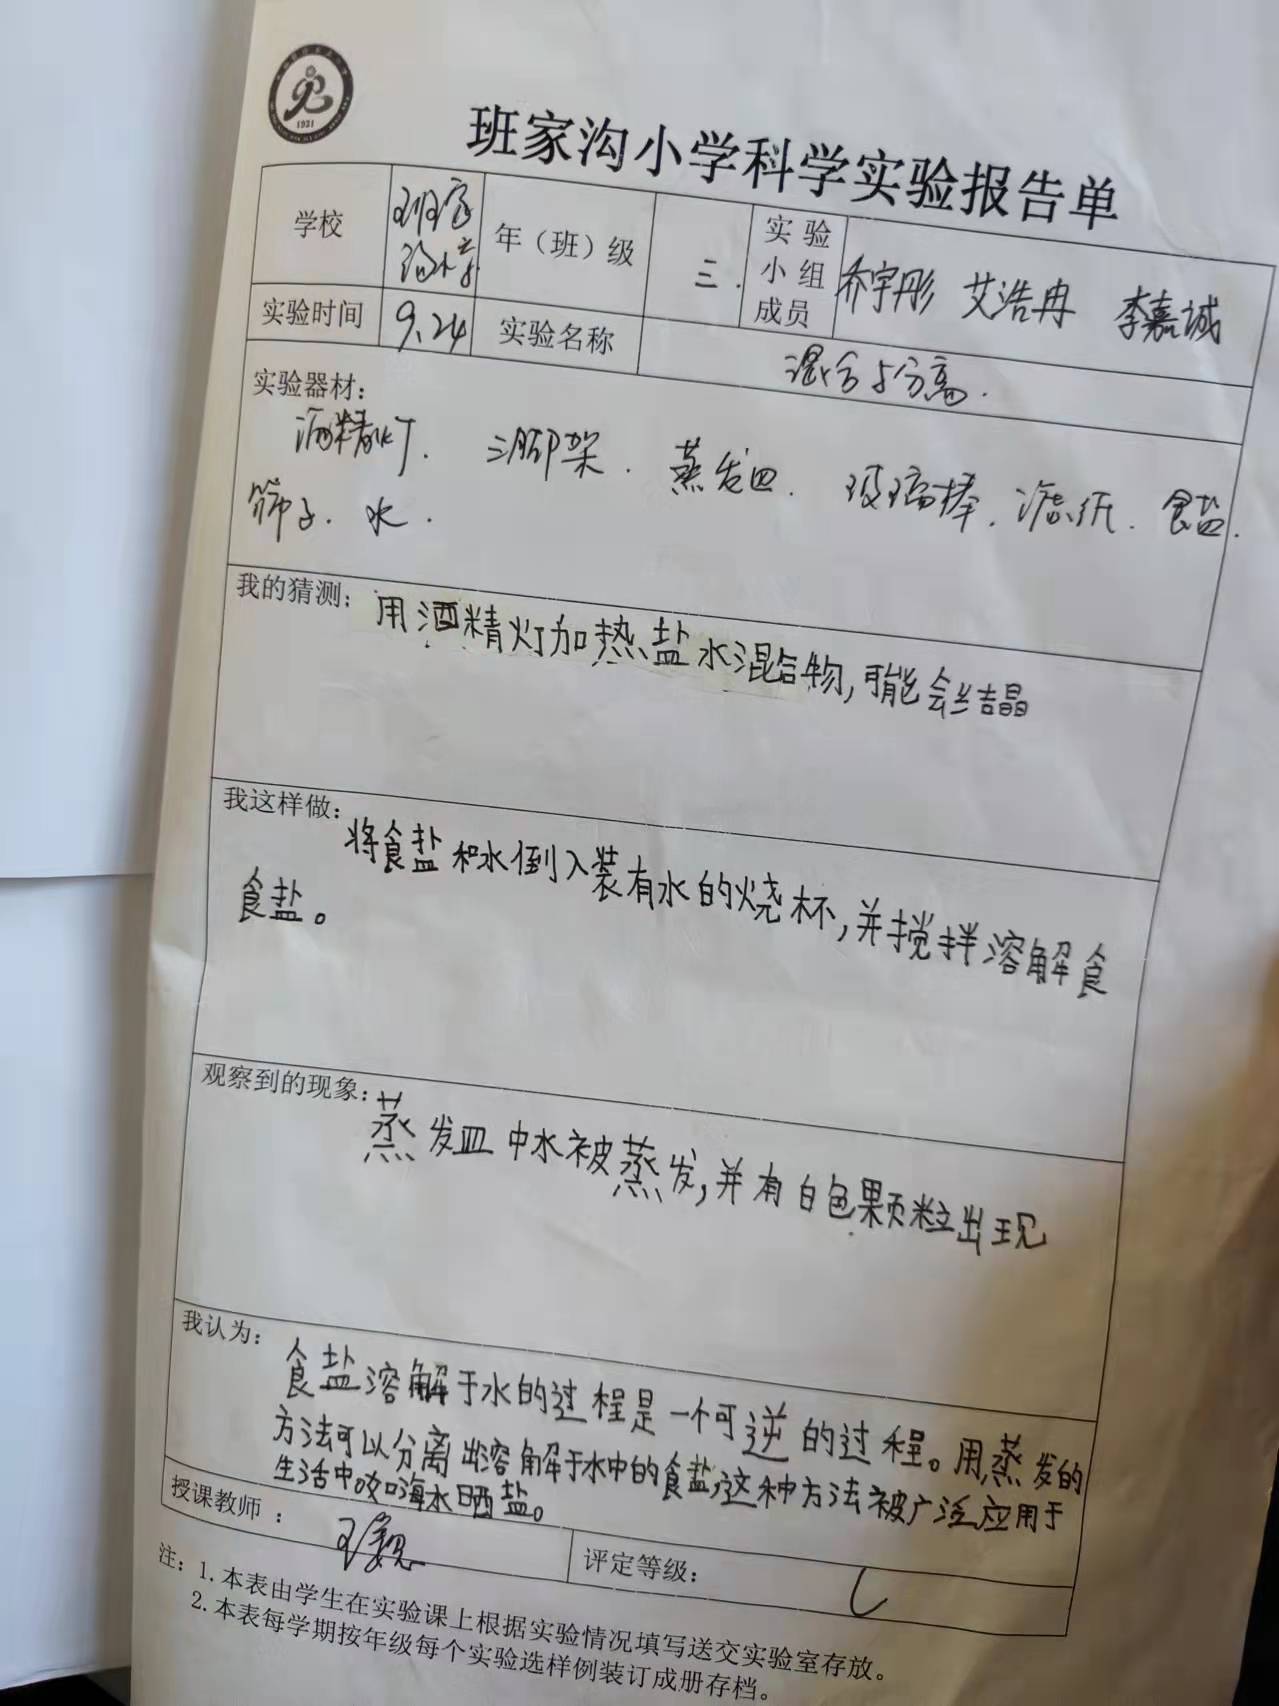 1931
班家沟小学科学实验报告单
学校 班家沟小学 年（班）级 三. 实验小组成员 乔宇彤 艾浩冉 李嘉诚
实验时间 9.24 实验名称 混合与分离.
实验器材：
酒精灯. 三脚架. 蒸发皿. 玻璃棒. 滤纸. 食盐.
筛子. 水.
我的猜测：用酒精灯加热盐水混合物,可能会结晶
我这样做：将食盐和水倒入装有水的烧杯,并搅拌溶解食
食盐。
观察到的现象：蒸发皿中水被蒸发,并有白色颗粒出现
我认为：食盐溶解于水的过程是一个可逆的过程。用蒸发的
方法可以分离出溶解于水中的食盐,这种方法被广泛应用于
生活中如海水晒盐。
授课教师： 评定等级：
注：1.本表由学生在实验课上根据实验情况填写送交实验室存放。
2.本表每学期按年级每个实验选样例装订成册存档。